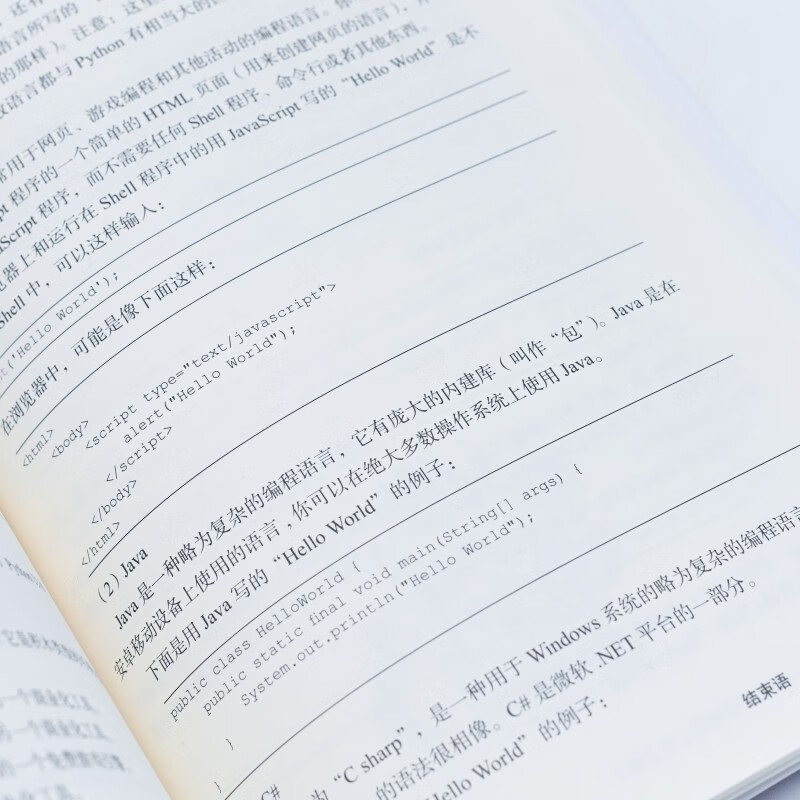 语言所写的
的那样)。注意:这里
数语言都与 Python 有相当大的
常用于网页、游戏编程和其他活动的编程语言。
程序的一个简单的 HTML 页面(用来创建网页的语言)。
Script 程序,而不需要任何 Shell 程序、命令行或者其他东西。
览器上和运行在 Shell 程序中的用 JavaScript 写的“Hello World”是不
Shell 中,可以这样输入:
('Hello World');
在浏览器中,可能是像下面这样:
<html>
<body>
<script type="text/javascript">
alert("Hello World");
</script>
</body>
</html>
(2)Java
Java 是一种略为复杂的编程语言,它有庞大的内建库(叫作“包”)。Java 是在
安卓移动设备上使用的语言,你可以在绝大多数操作系统上使用 Java。
下面是用 Java 写的“Hello World”的例子:
public class HelloWorld {
public static final void main(String[] args) {
System.out.println("Hello World");
}
}
C#
为“C sharp”,是一种用于 Windows 系统的略为复杂的编程语言
的语法很相像。C# 是微软 .NET 平台的一部分。
Hello World”的例子:
结束语